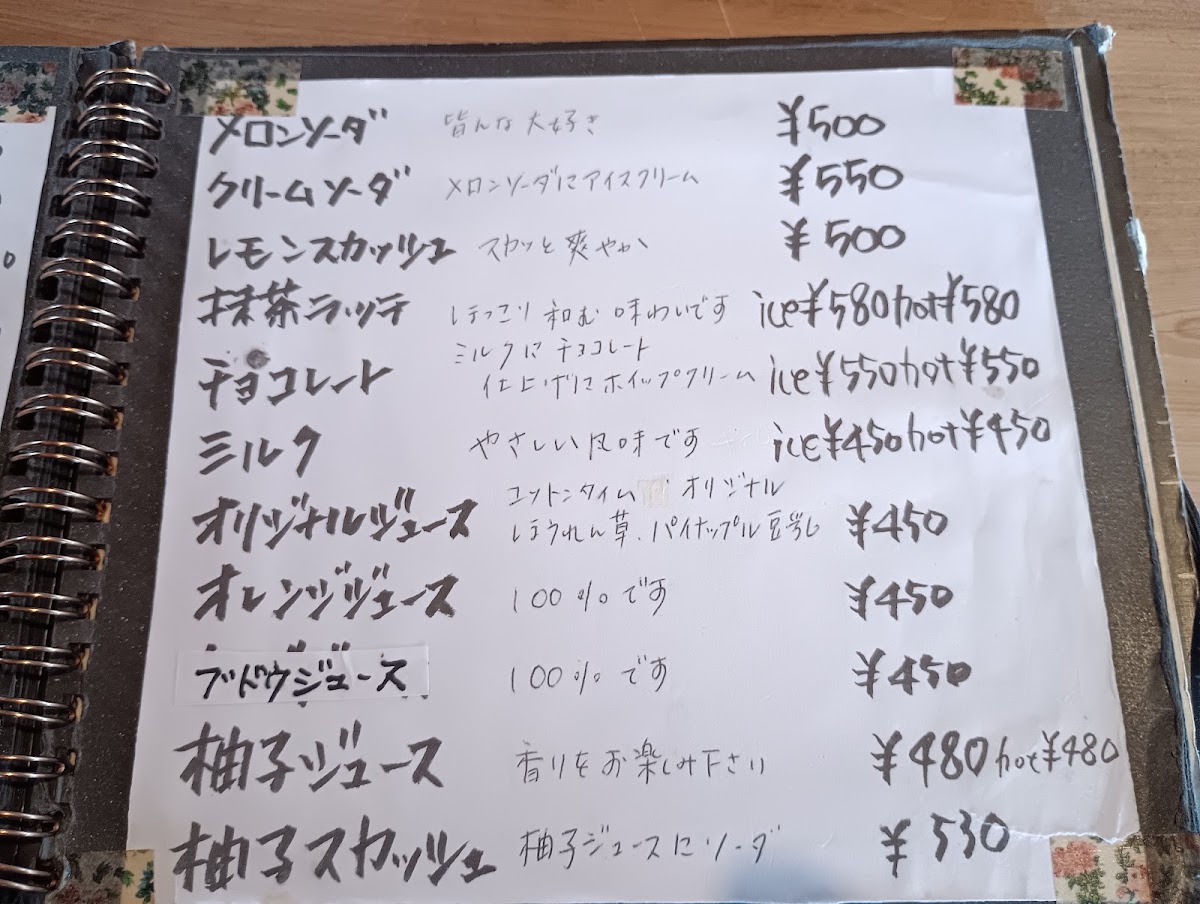 メロンソーダ 皆んな大好き ¥500
クリームソーダ メロンソーダにアイスクリーム ¥550
レモンスカッシュ スカッと爽やか ¥500
抹茶ラッテ ほっこり和む味わいです ice¥580hot¥580
チョコレート ミルクにチョコレート
仕上げにホイップクリーム ice¥550hot¥550
ミルク やさしい風味です ice¥450hot¥450
オリジナルジュース コットンタイム オリジナル
ほうれん草、パイナップル豆乳 ¥450
オレンジジュース 100%です ¥450
ブドウジュース 100%です ¥450
柚子ジュース 香りをお楽しみ下さい ¥480hot¥480
柚子スカッシュ 柚子ジュースにソーダ ¥530